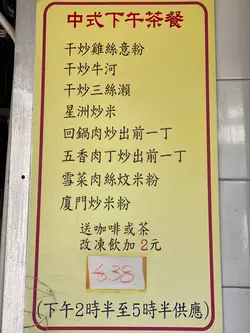 中式下午茶餐
干炒雞絲意粉
干炒牛河
干炒三絲瀨
星洲炒米
回鍋肉炒出前一丁
五香肉丁炒出前一丁
雪菜肉絲炆米粉
廈門炒米粉
送咖啡或茶
改凍飲加2元
$38
(下午2時半至5時半供應)